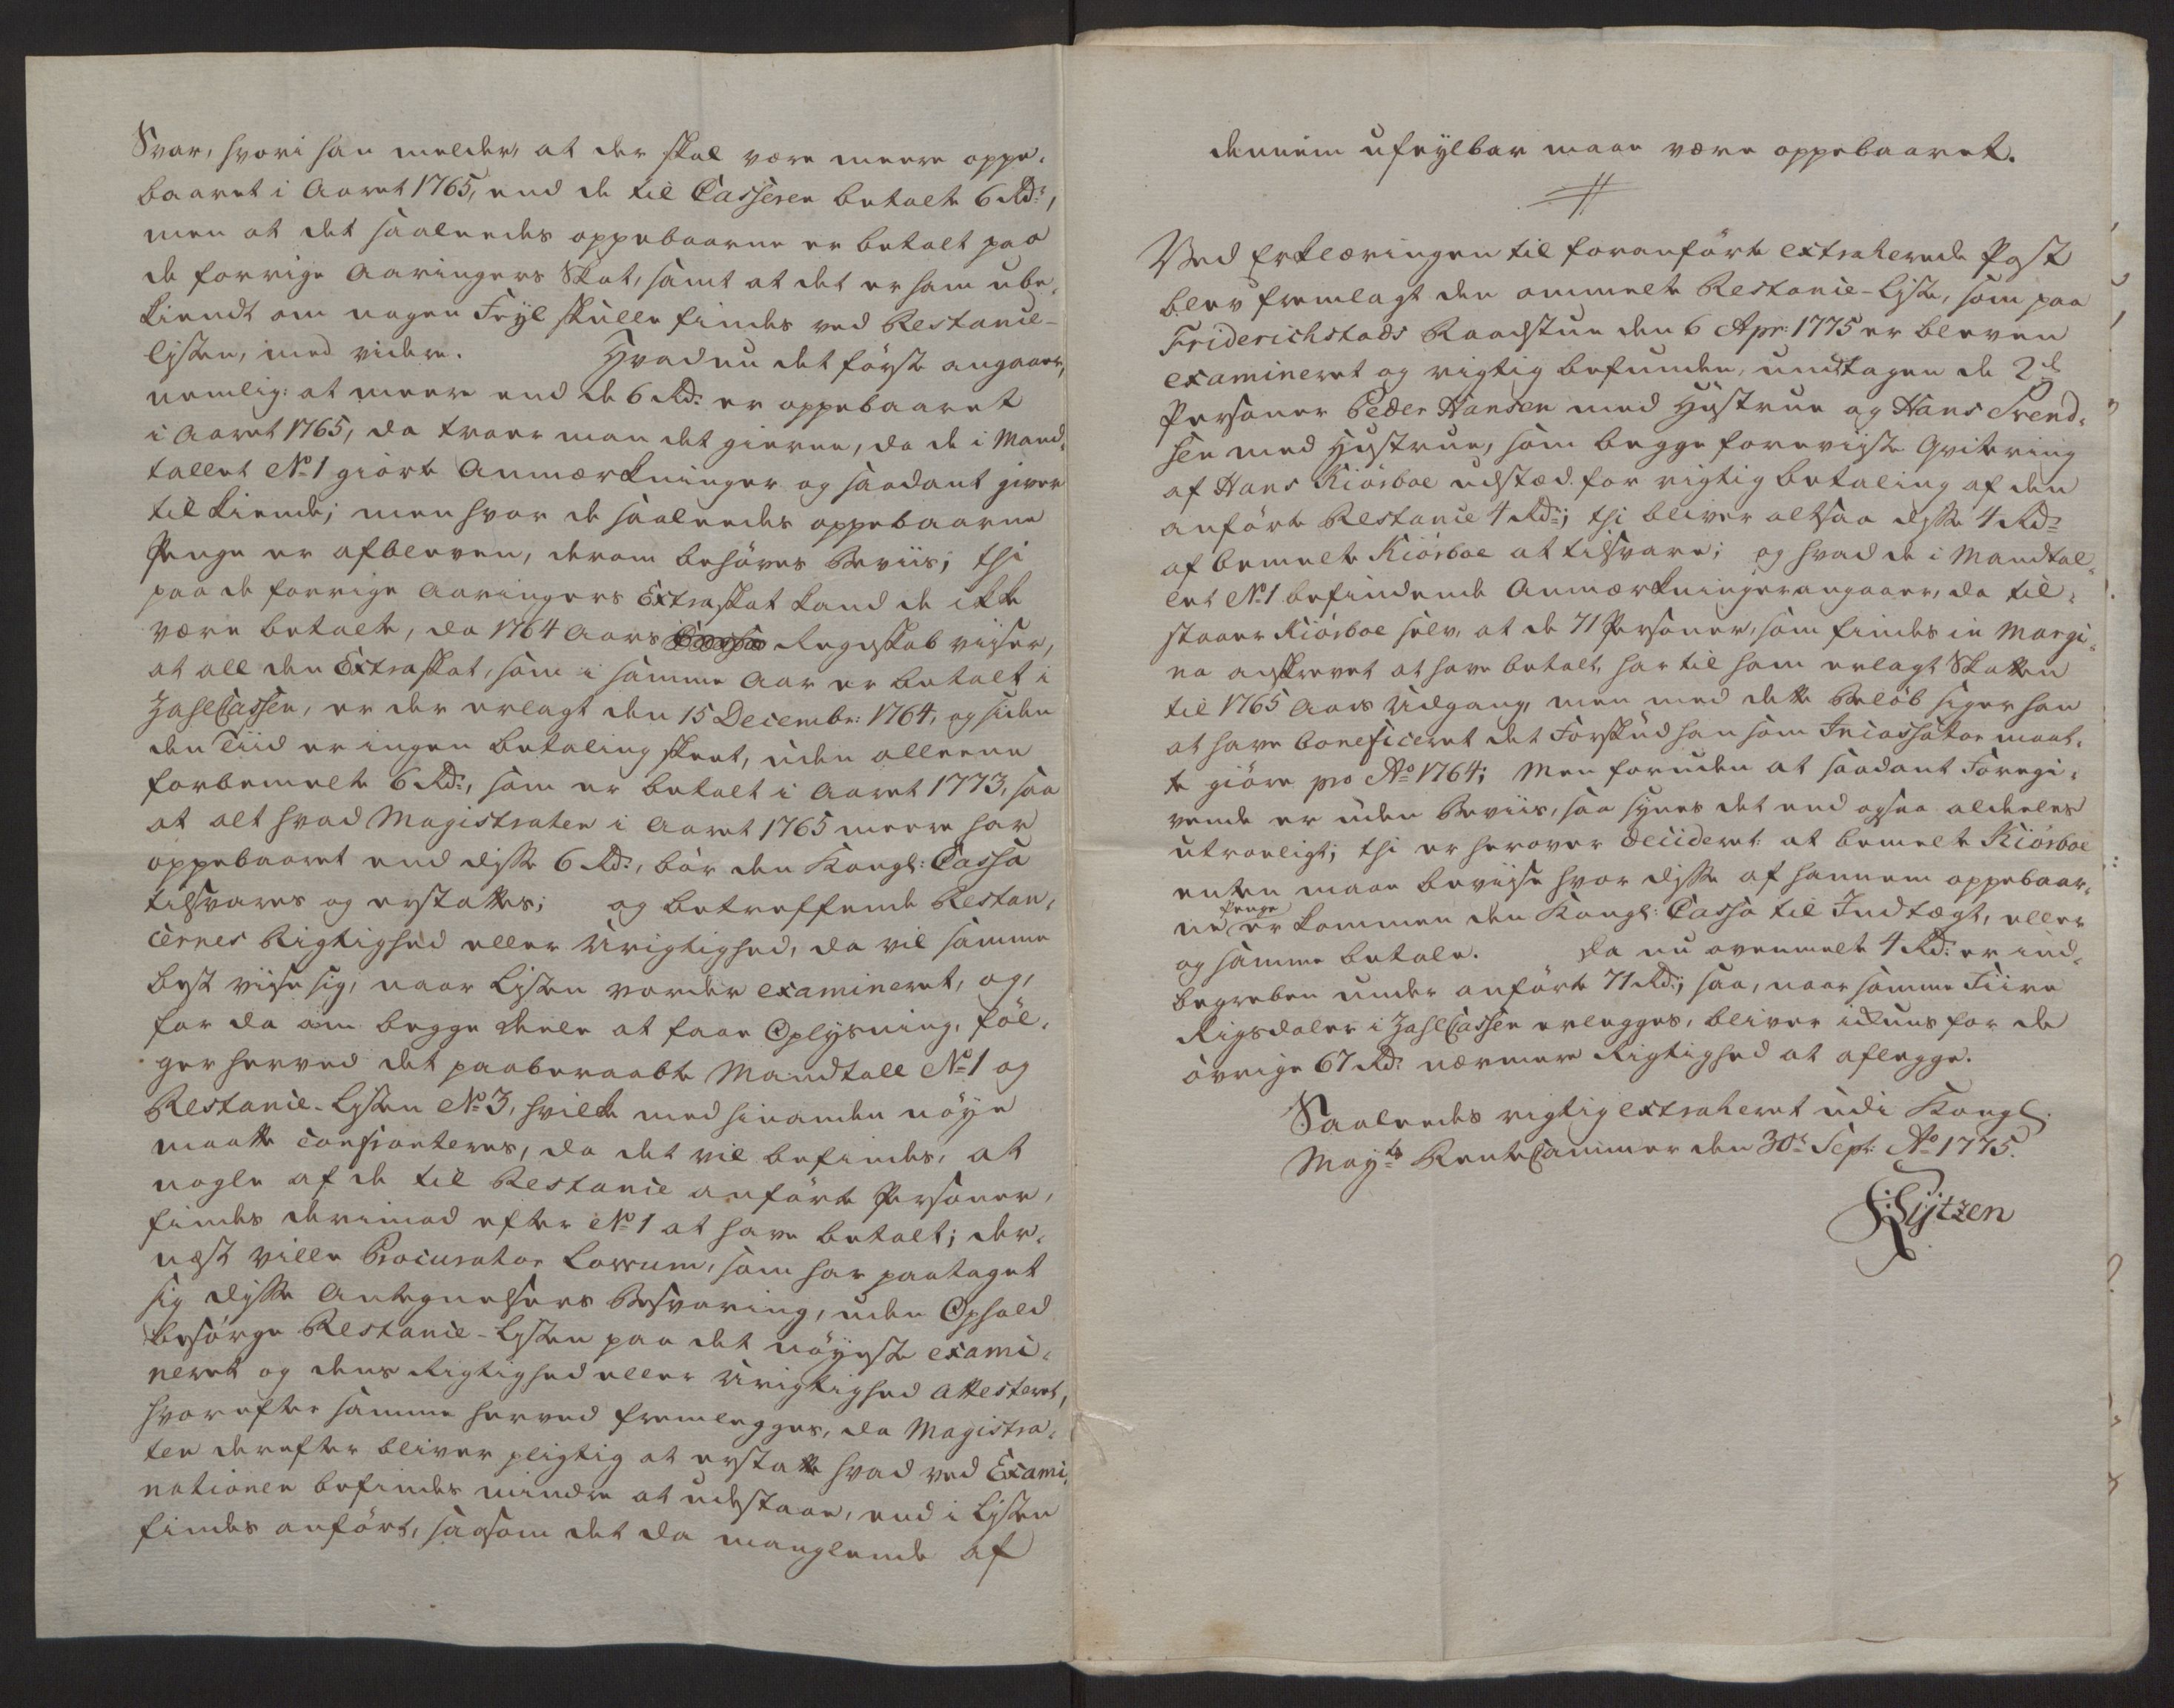 Svar, hvori han melder, at der skal være meere oppe-
baaret i Aaret 1765, end de til Casseren betalte 6 Rd.,
men at det saaleedes oppebaarne er betalt paa
de forrige Aaringers Skat, samt at det er ham ube-
kiendt om nogen Feyl skulle findes ved Restance-
Listen, med videre. Hvad nu det første angaaer,
nemlig: at meere end de 6 Rd. er oppebaaret
i Aaret 1765, da troer man det gierne, da de i Mand-
tallet No 1 giorte Anmærkninger og saadant giver
til kiende; men hvor de saaleedes oppebaarne
Penge er afbleven, derom behøves Beviis; thi
paa de forrige Aaringers Extraskat kand de ikke
være betalt, da 1764 Aars Regnskab viiser,
at all den Extraskat, som i samme Aar er betalt i
ZahlCassen, er der erlagt den 15 Decembr: 1764, og siden
den Tiid er ingen betaling skeet, uden alleene
forbemelte 6 Rd., som er betalt i Aaret 1773, saa
at alt hvad Magistraten i Aaret 1765 meere har
oppebaaret end disse 6 Rd., bør den Kongl: Cassa
tilsvares og erstattes; og betreffende Restan-
cernes Rigtighed eller Urigtighed, da vil samme
best viise sig, naar Listen vorder examineret, og,
for da om begge deele at faae Oplysning, føl-
ger herved det paaberaabte Mandtall No 1 og
Restance-Listen No 3, hvilke med hinanden nøye
maatte confronteres, da det vil befindes, at
nogle af de til Restance anførte Personer,
findes derimod efter No 1 at have betalt; der-
nest ville Procurator Lorrum, som har paataget
sig disse Antegnelsers Besvaring, uden Ophold
besørge Restance-Listen paa det nøyeste exami-
neret og dens Rigtighed eller Urigtighed Attesteret,
hvorefter samme herved fremlegges, da Magistra-
ten derefter bliver pligtig at erstatte hvad ved Exami-
nationen befindes mindre at udestaae, end i Listen
findes anført, saasom det da manglende af
dennem ufeylbar maae være oppebaaret.
Ved Erklæringen til foranførte extraherede Post
blev fremlagt den ommelte Restance-Liste, som paa
Friderichstads Raadstue den 6 Apr: 1775 er bleven
examineret og rigtig befunden, undtagen de 2de
Personer Peder Hansen med Hustrue og Hans Svend-
sen med Hustrue, som begge foreviiste Qvitering
af Hans Kiørboe udstæd for rigtig betaling af den
anførte Restance 4 Rd.; thi bliver altsaa disse 4 Rd.
af bemelte Kiørboe at tilsvare; og hvad de i Mandtal-
let No 1 befindende Anmærkninger angaaer, da til-
staaer Kiørboe selv, at de 71 Personer, som findes in Margi-
ne anskrevet at have betalt, har til ham erlagt Skatten
til 1765 Aars Udgang, men med dette Beløb siger han
at have boneficeret det Forskud han som Incassator maat-
te giøre pro Ao 1764; Men foruden at saadant Foregi-
vende er uden Beviis, saa synes det end ogsaa aldeeles
utroeligt; thi er herover decideret: at bemelte Kiørboe
enten maae beviise hvor disse af hannem oppebaar-
ne Penge er kommen den Kongl: Cassa til Indtægt, eller
og samme betale. Da nu ovenmelte 4 Rd. er ind-
begreben under anførte 71 Rd., saa, naar samme Fiire
Rigsdaler i ZahlCassen erlegges, bliver ickuns for de
øvrige 67 Rd. nærmere Rigtighed at aflegge.
Saaleedes rigtig extraheret udi Kongl.
Mayts RenteCammer den 30te Sept: Ao 1775.